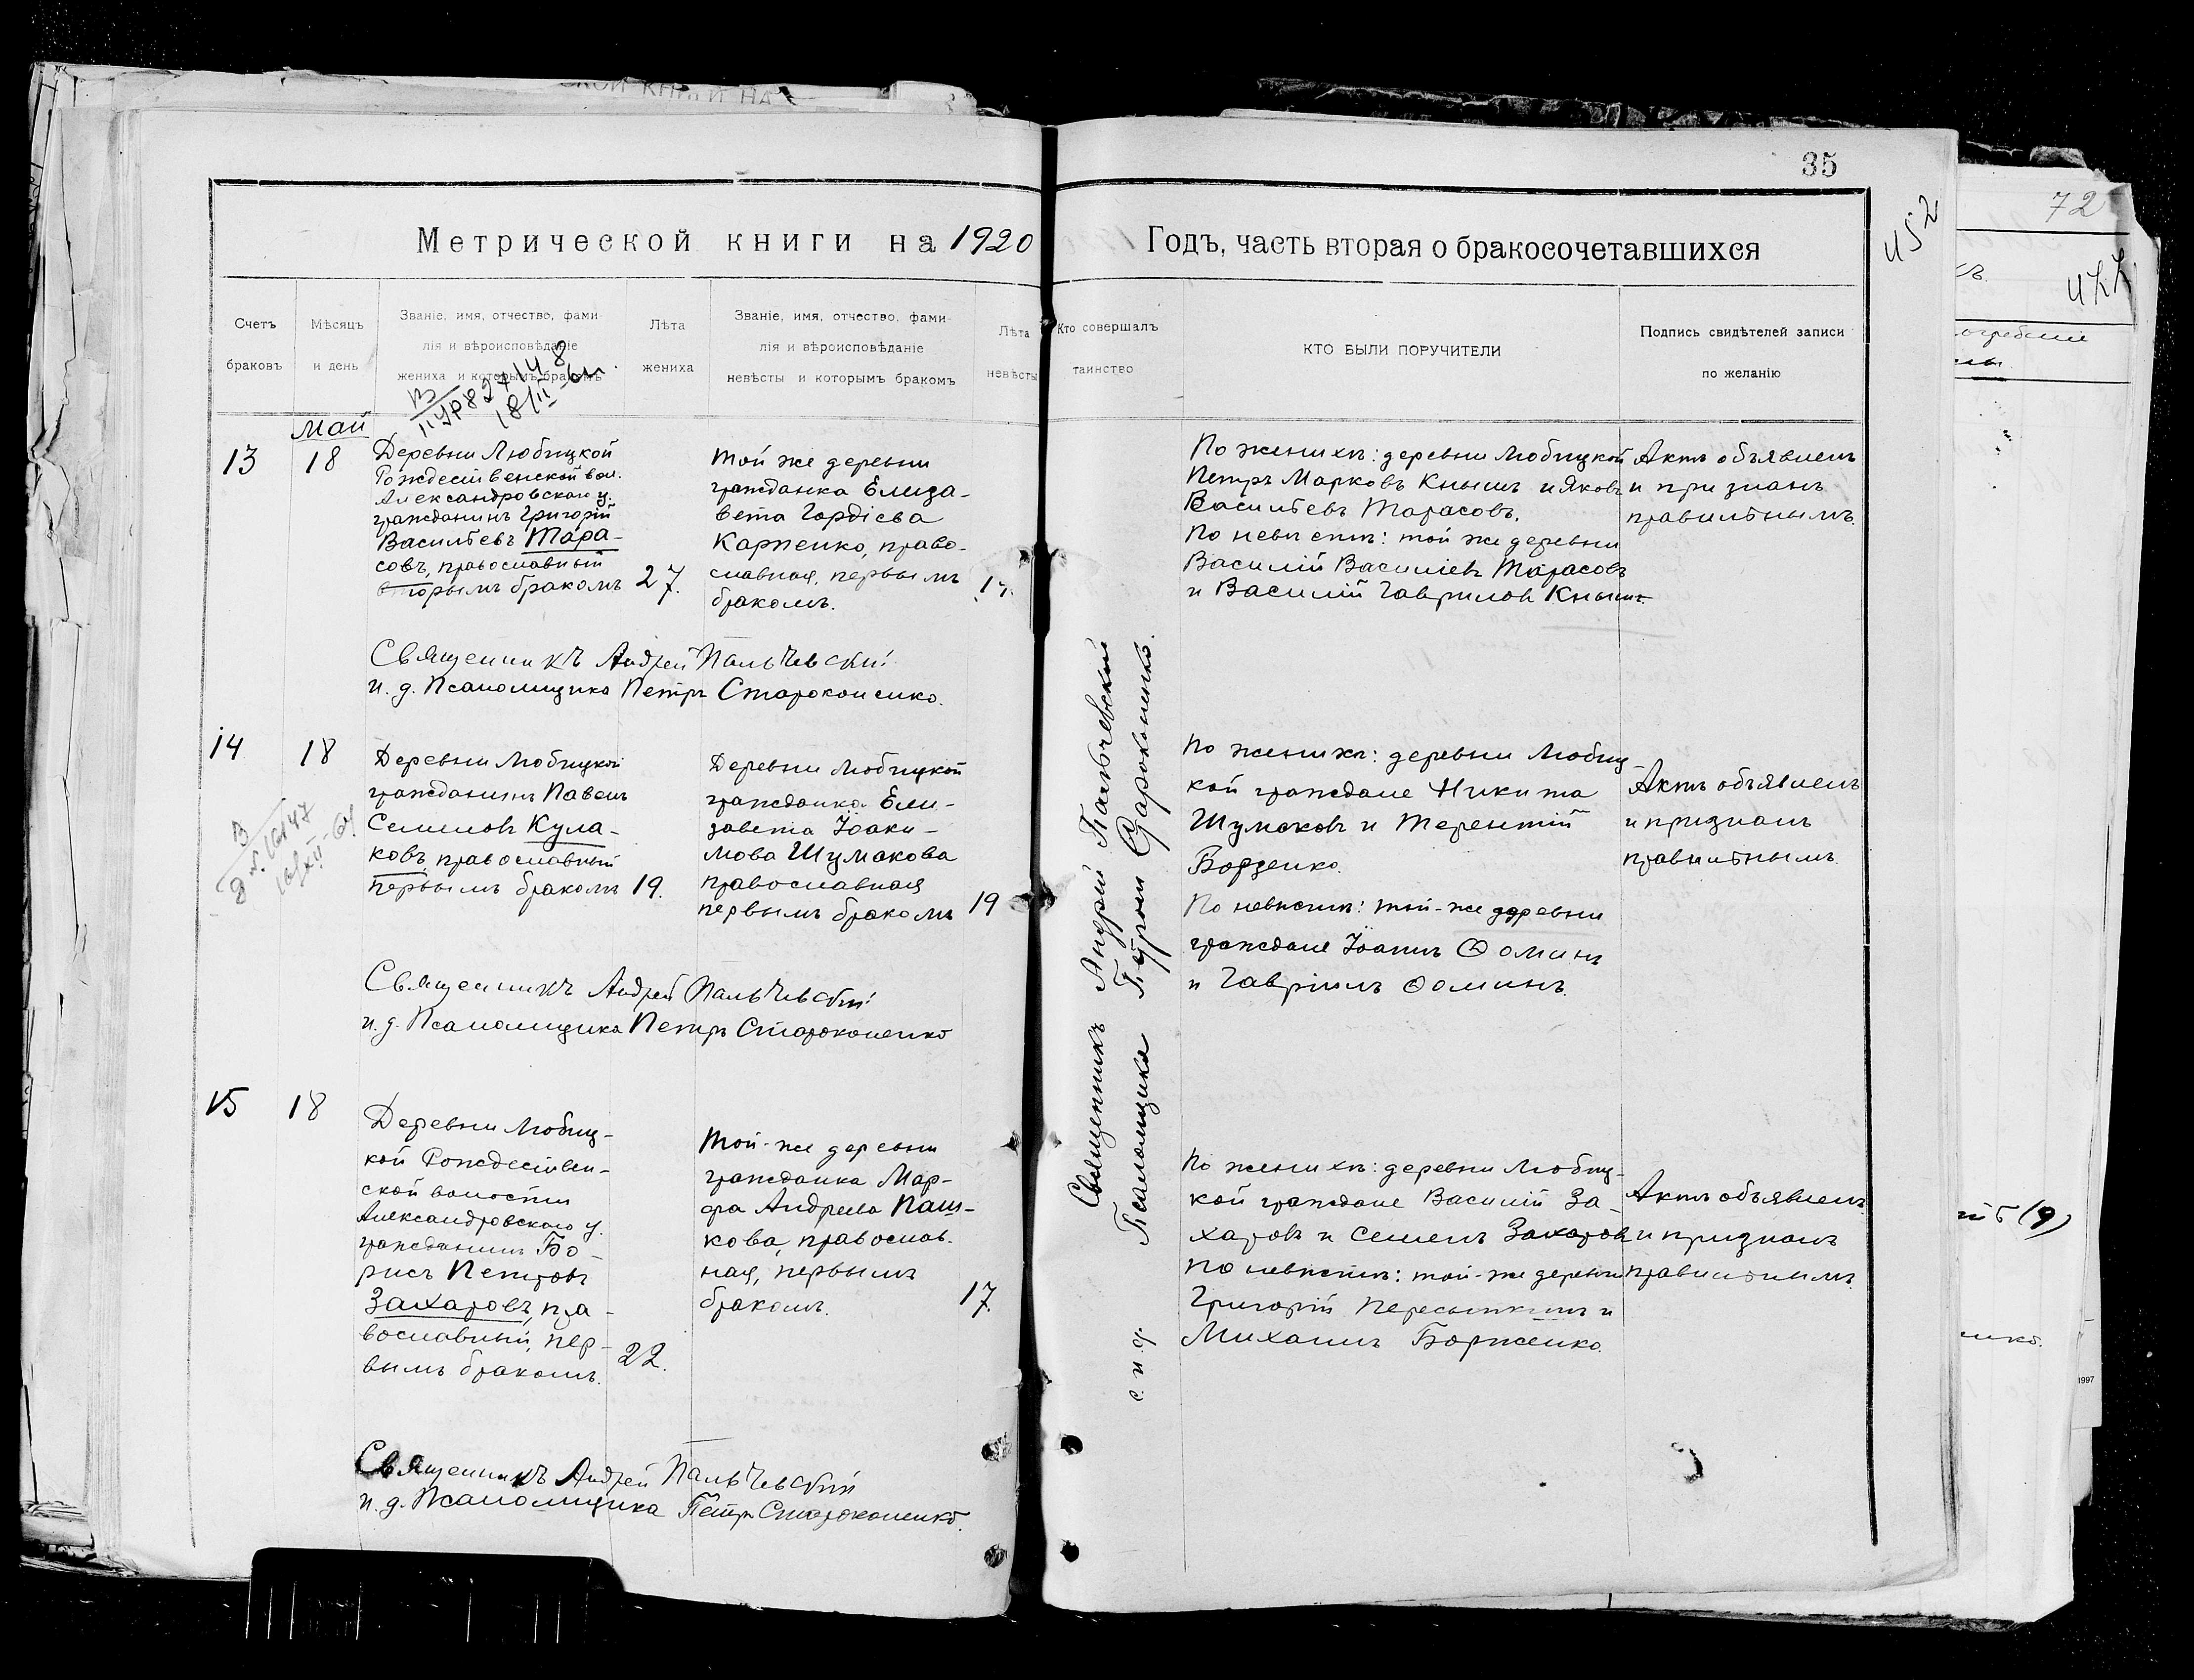 35
Метрической книги на 1920 Годъ, часть вторая о бракосочетавшихся
452
72
Счетъ браковъ
Мѣсяцъ и день
Званіе, имя, отчество, фами-
лія и вѣроисповѣданіе
жениха и которымъ бракомъ
Лѣта жениха
Званіе, имя, отчество, фами-
лія и вѣроисповѣданіе
невѣсты и которымъ бракомъ
Лѣта невѣсты
Кто совершалъ таинство
КТО БЫЛИ ПОРУЧИТЕЛИ
Подпись свидѣтелей записи
по желанію
Май
13
18
Деревни Любицкой
Рождественской вол.
Александровскаго у.
гражданинъ Григорій
Васильевъ Тара-
совъ, православный
вторымъ бракомъ
27.
той же деревни
гражданка Елиза-
вета Гордіева
Карпенко, право-
славная, первымъ
бракомъ.
По женихѣ: деревни Любицкой
Петръ Марковъ Кнышъ и Яковъ
Васильевъ Тарасовъ.
По невѣстѣ: той же деревни
Василій Василіевъ Тарасовъ
и Василій Гавриловъ Кнышъ.
Актъ объявленъ
и признанъ
правильнымъ.
Священникъ Андрей Пальчевскій
и. д. Псаломщика Петръ Староконенко.
14
18
Деревни Любицкой
гражданинъ Павелъ
Семеновъ Кула-
ковъ, православный
первымъ бракомъ
19.
Деревни Любицкой
гражданка Ели-
завета Іоаки-
мова Шумакова
православная
первымъ бракомъ
19
По женихѣ: деревни Любиц-
кой граждане Никита
Шумаковъ и Терентій
Борзенко.
По невѣстѣ: той-же деревни
граждане Іоаннъ Ѳоминъ
и Гавріилъ Ѳоминъ.
Актъ объявленъ
и признанъ
правильнымъ.
Священникъ Андрей Пальчевскій
и. д. Псаломщика Петръ Староконенко
15
18
Деревни Любиц-
кой Рождествен-
ской волости
Александровскаго у.
гражданинъ Бо-
рисъ Петровъ
Захаровъ, пра-
вославный, пер-
вымъ бракомъ.
22.
Той-же деревни
гражданка Мар-
фа Андреева Паш-
кова, православ-
ная, первымъ
бракомъ.
17.
По женихѣ: деревни Любиц-
кой граждане Василій За-
харовъ и Семенъ Захаровъ
По невѣстѣ: той-же деревни
Григорій Пересыпкинъ и
Михаилъ Борженко.
Актъ объявленъ
и признанъ
правильнымъ.
Священникъ Андрей Пальчевскій
и. д. Псаломщика Петръ Староконенко.
Священникъ Андрей Пальчевскій
с. и. д. Псаломщика Петръ Староконенко.
1997